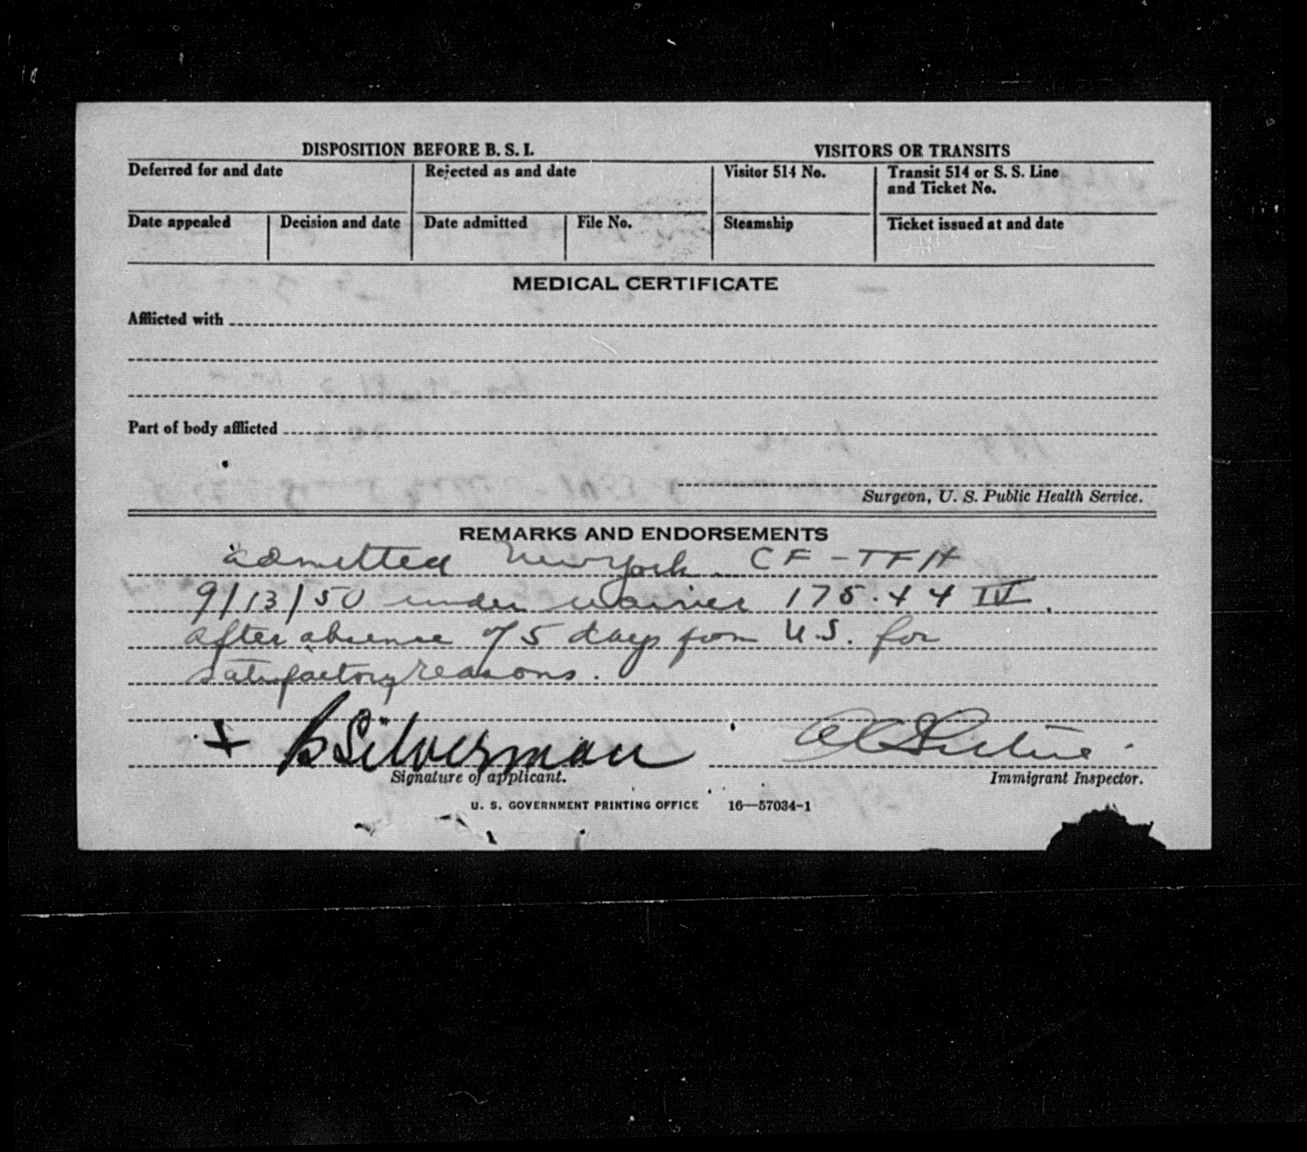 DISPOSITION BEFORE B. S. I.
VISITORS OR TRANSITS
Deferred for and date
Rejected as and date
Visitor 514 No.
Transit 514 or S. S. Line
and Ticket No.
Date appealed
Decision and date
Date admitted
File No.
Steamship
Ticket issued at and date
MEDICAL CERTIFICATE
Afflicted with
Part of body afflicted
Surgeon, U. S. Public Health Service.
REMARKS AND ENDORSEMENTS
admitted New York. CF-TFH
9/13/50 under waiver 175.44 IV.
after absence of 5 days from U.S. for
satisfactory reasons.
+ B Silverman
Signature of applicant.
Immigrant Inspector.
U. S. GOVERNMENT PRINTING OFFICE 16—57034-1